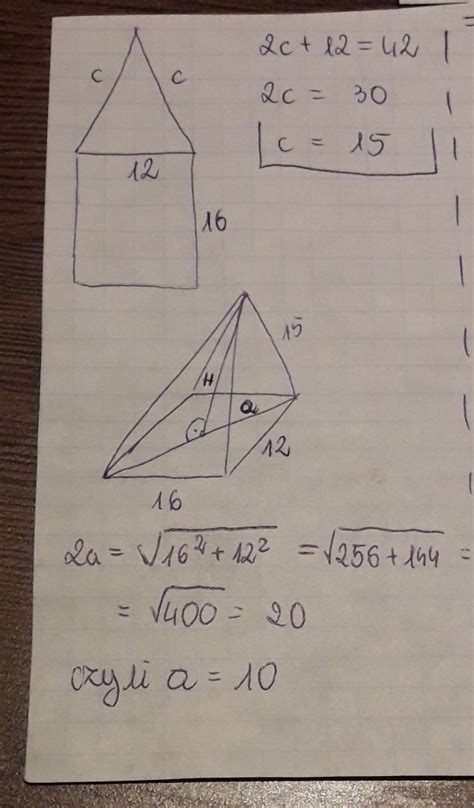 c c
2c + 12 = 42
2c = 30
c = 15
12
16
15
H
a
12
16
2a = √16² + 12² = √256 + 144 =
= √400 = 20
czyli a = 10